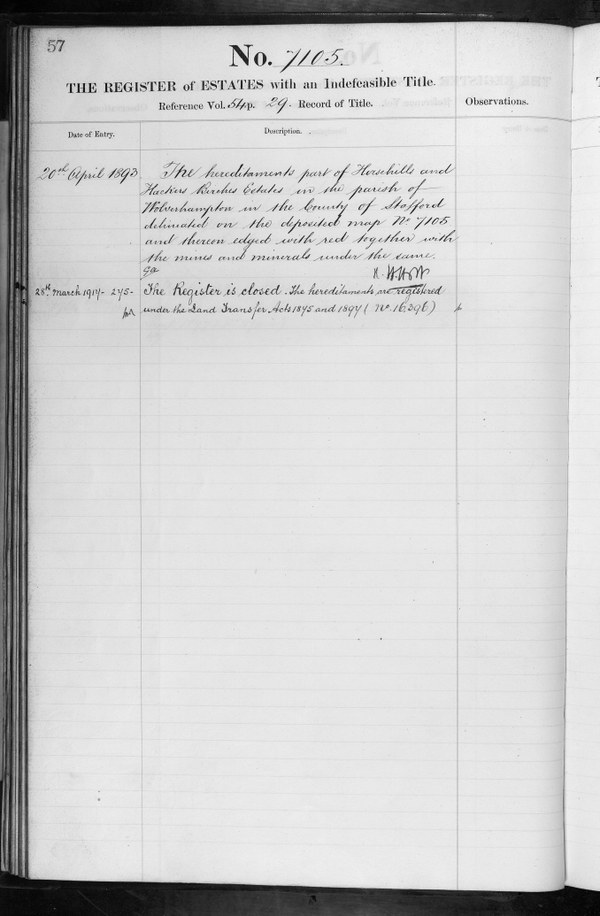 57
No. 7105.
THE REGISTER of ESTATES with an Indefeasible Title.
Reference Vol. 54 p. 29. Record of Title.
Observations.
Date of Entry.
Description.
20th April 1893
The hereditaments part of Horsehills and
Hackers Birches Estates in the parish of
Wolverhampton in the County of Stafford
delineated on the deposited map No 7105
and thereon edged with red together with
the mines and minerals under the same.
28th March 1917 - 275 -
The Register is closed. The hereditaments registered
under the Land Transfer Acts 1875 and 1897 (No. 16396)